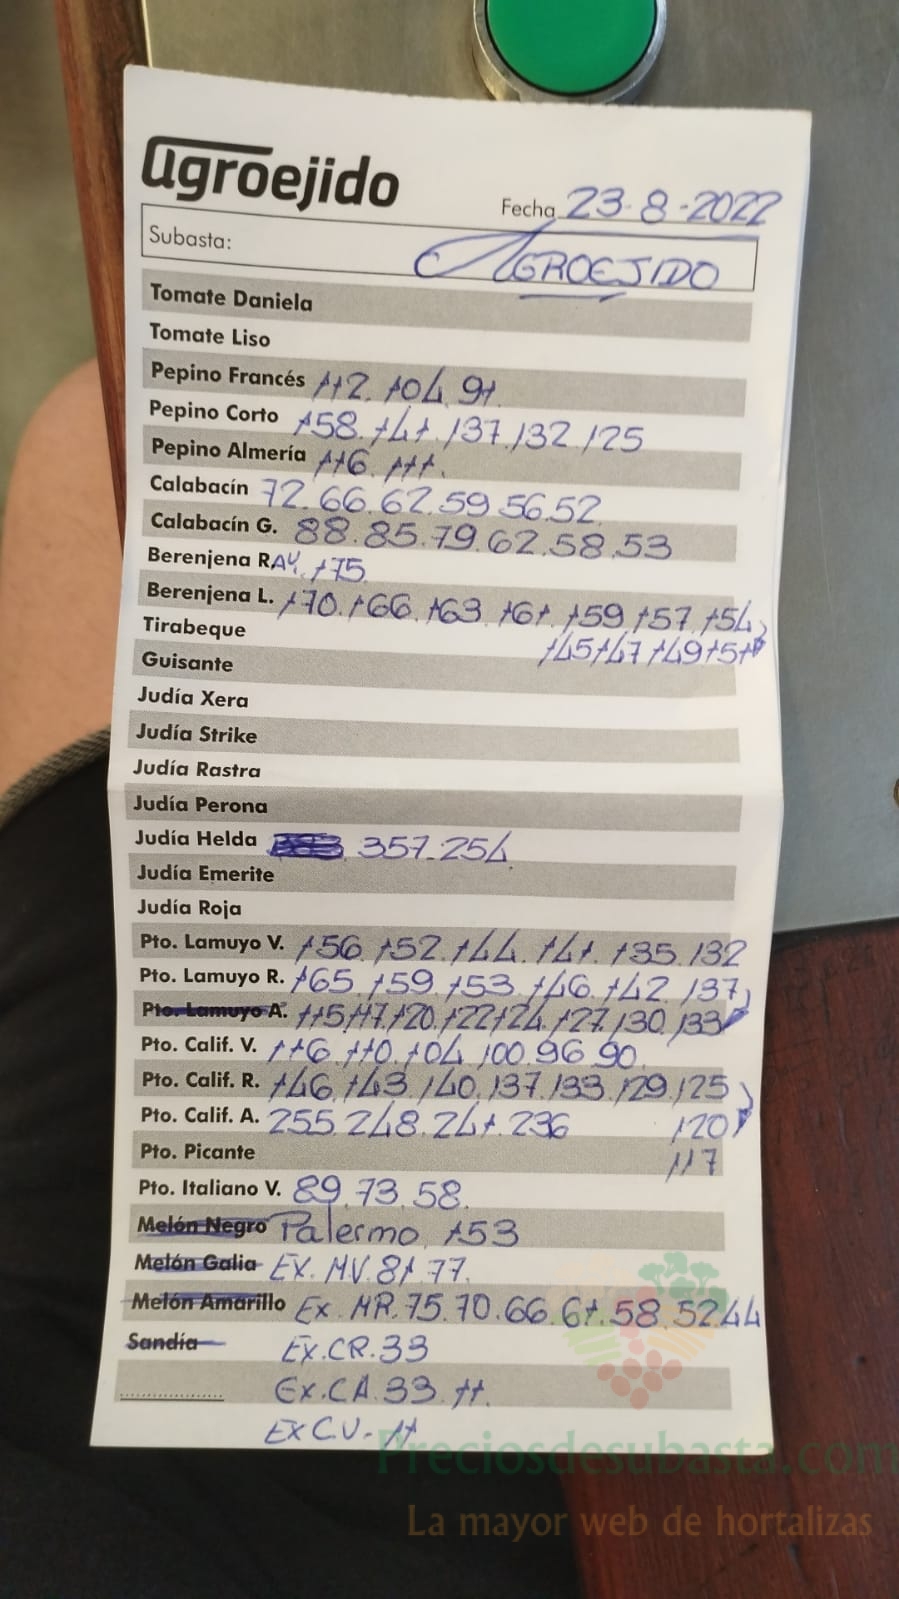 agroejido
Fecha 23-8-2022
Subasta: AGROEJIDO
Tomate Daniela
Tomate Liso
Pepino Francés 112. 104. 91.
Pepino Corto 158. 141. 137. 132. 125
Pepino Almería 116. 111.
Calabacín 72. 66. 62. 59. 56. 52.
Calabacín G. 88. 85. 79. 62. 58. 53
Berenjena RAY. 175.
Berenjena L. 170. 166. 163. 161. 159 157. 154
Tirabeque 145 147 149 151
Guisante
Judía Xera
Judía Strike
Judía Rastra
Judía Perona
Judía Helda 357. 254
Judía Emerite
Judía Roja
Pto. Lamuyo V. 156. 152. 144. 141. 135. 132
Pto. Lamuyo R. 165. 159. 153. 146. 142. 137
Pto. Lamuyo A. 115. 117. 120. 122 124. 127. 130. 133
Pto. Calif. V. 116. 110. 104. 100. 96. 90.
Pto. Calif. R. 146. 143. 140. 137. 133. 129. 125
Pto. Calif. A. 255. 248. 241. 236 120
Pto. Picante 117
Pto. Italiano V. 89. 73. 58.
Melón Negro Palermo 153
Melón Galia EX. MV. 81. 77.
Melón Amarillo Ex. MR. 75. 70. 66. 61. 58. 52 44
Sandía EX. CR. 33
Ex. CA. 33. 11.
EX C.V - 11
Preciosdesubasta.com
La mayor web de hortalizas